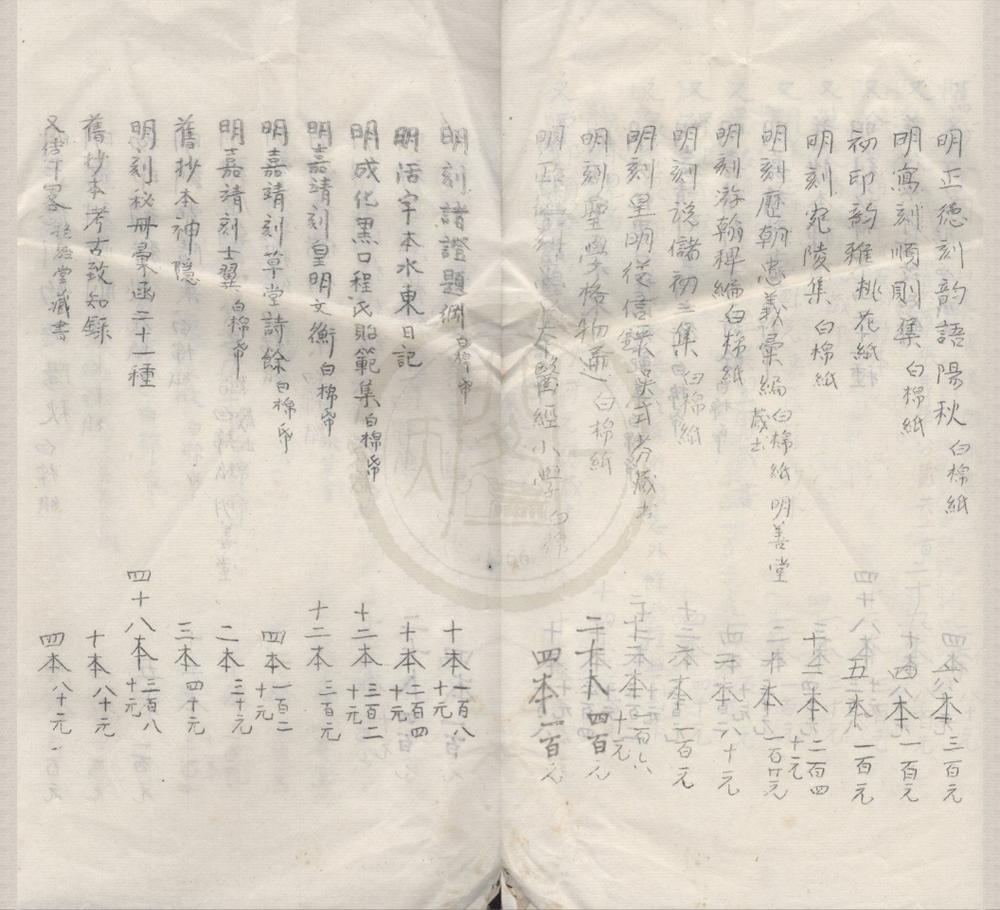 明正德刻韵語陽秋 白棉紙 本 三百元
明寫刻順則集 白棉紙 本 一百元
初印韵雅桃花紙 五本 一百元
明刻宛陵集 白棉紙 十二本 二百四十元
明刻歷朝忠義彙編 白棉紙 明善堂藏書 本 一百廿元
明刻游翰稗編 白棉紙 本 八十元
明刻說儲初二集 白棉紙 本 一百元
明刻皇明從信錄 藏書
明刻聖學格物通 白棉紙 二十本 四百元
明正 本醫經小學 白棉 四本 一百元
明刻諸證題綱 白棉帋 十本 一百八十元
明活字本水東日記 十本 二百四十元
明成化黑口程氏貽範集 白棉帋 十二本 三百二十元
明嘉靖刻皇明文衡 白棉帋 十二本 三百元
明嘉靖刻草堂詩餘 白棉帋 四本 一百二十元
明嘉靖刻士翼 白棉帋 二本 三十元
舊抄本神隱 三本 四十元
明刻秘冊彙函二十一種 四十八本 三百八十元
舊抄本考古致知錄 十本 八十元
又 客 經堂藏書 四本 八十元